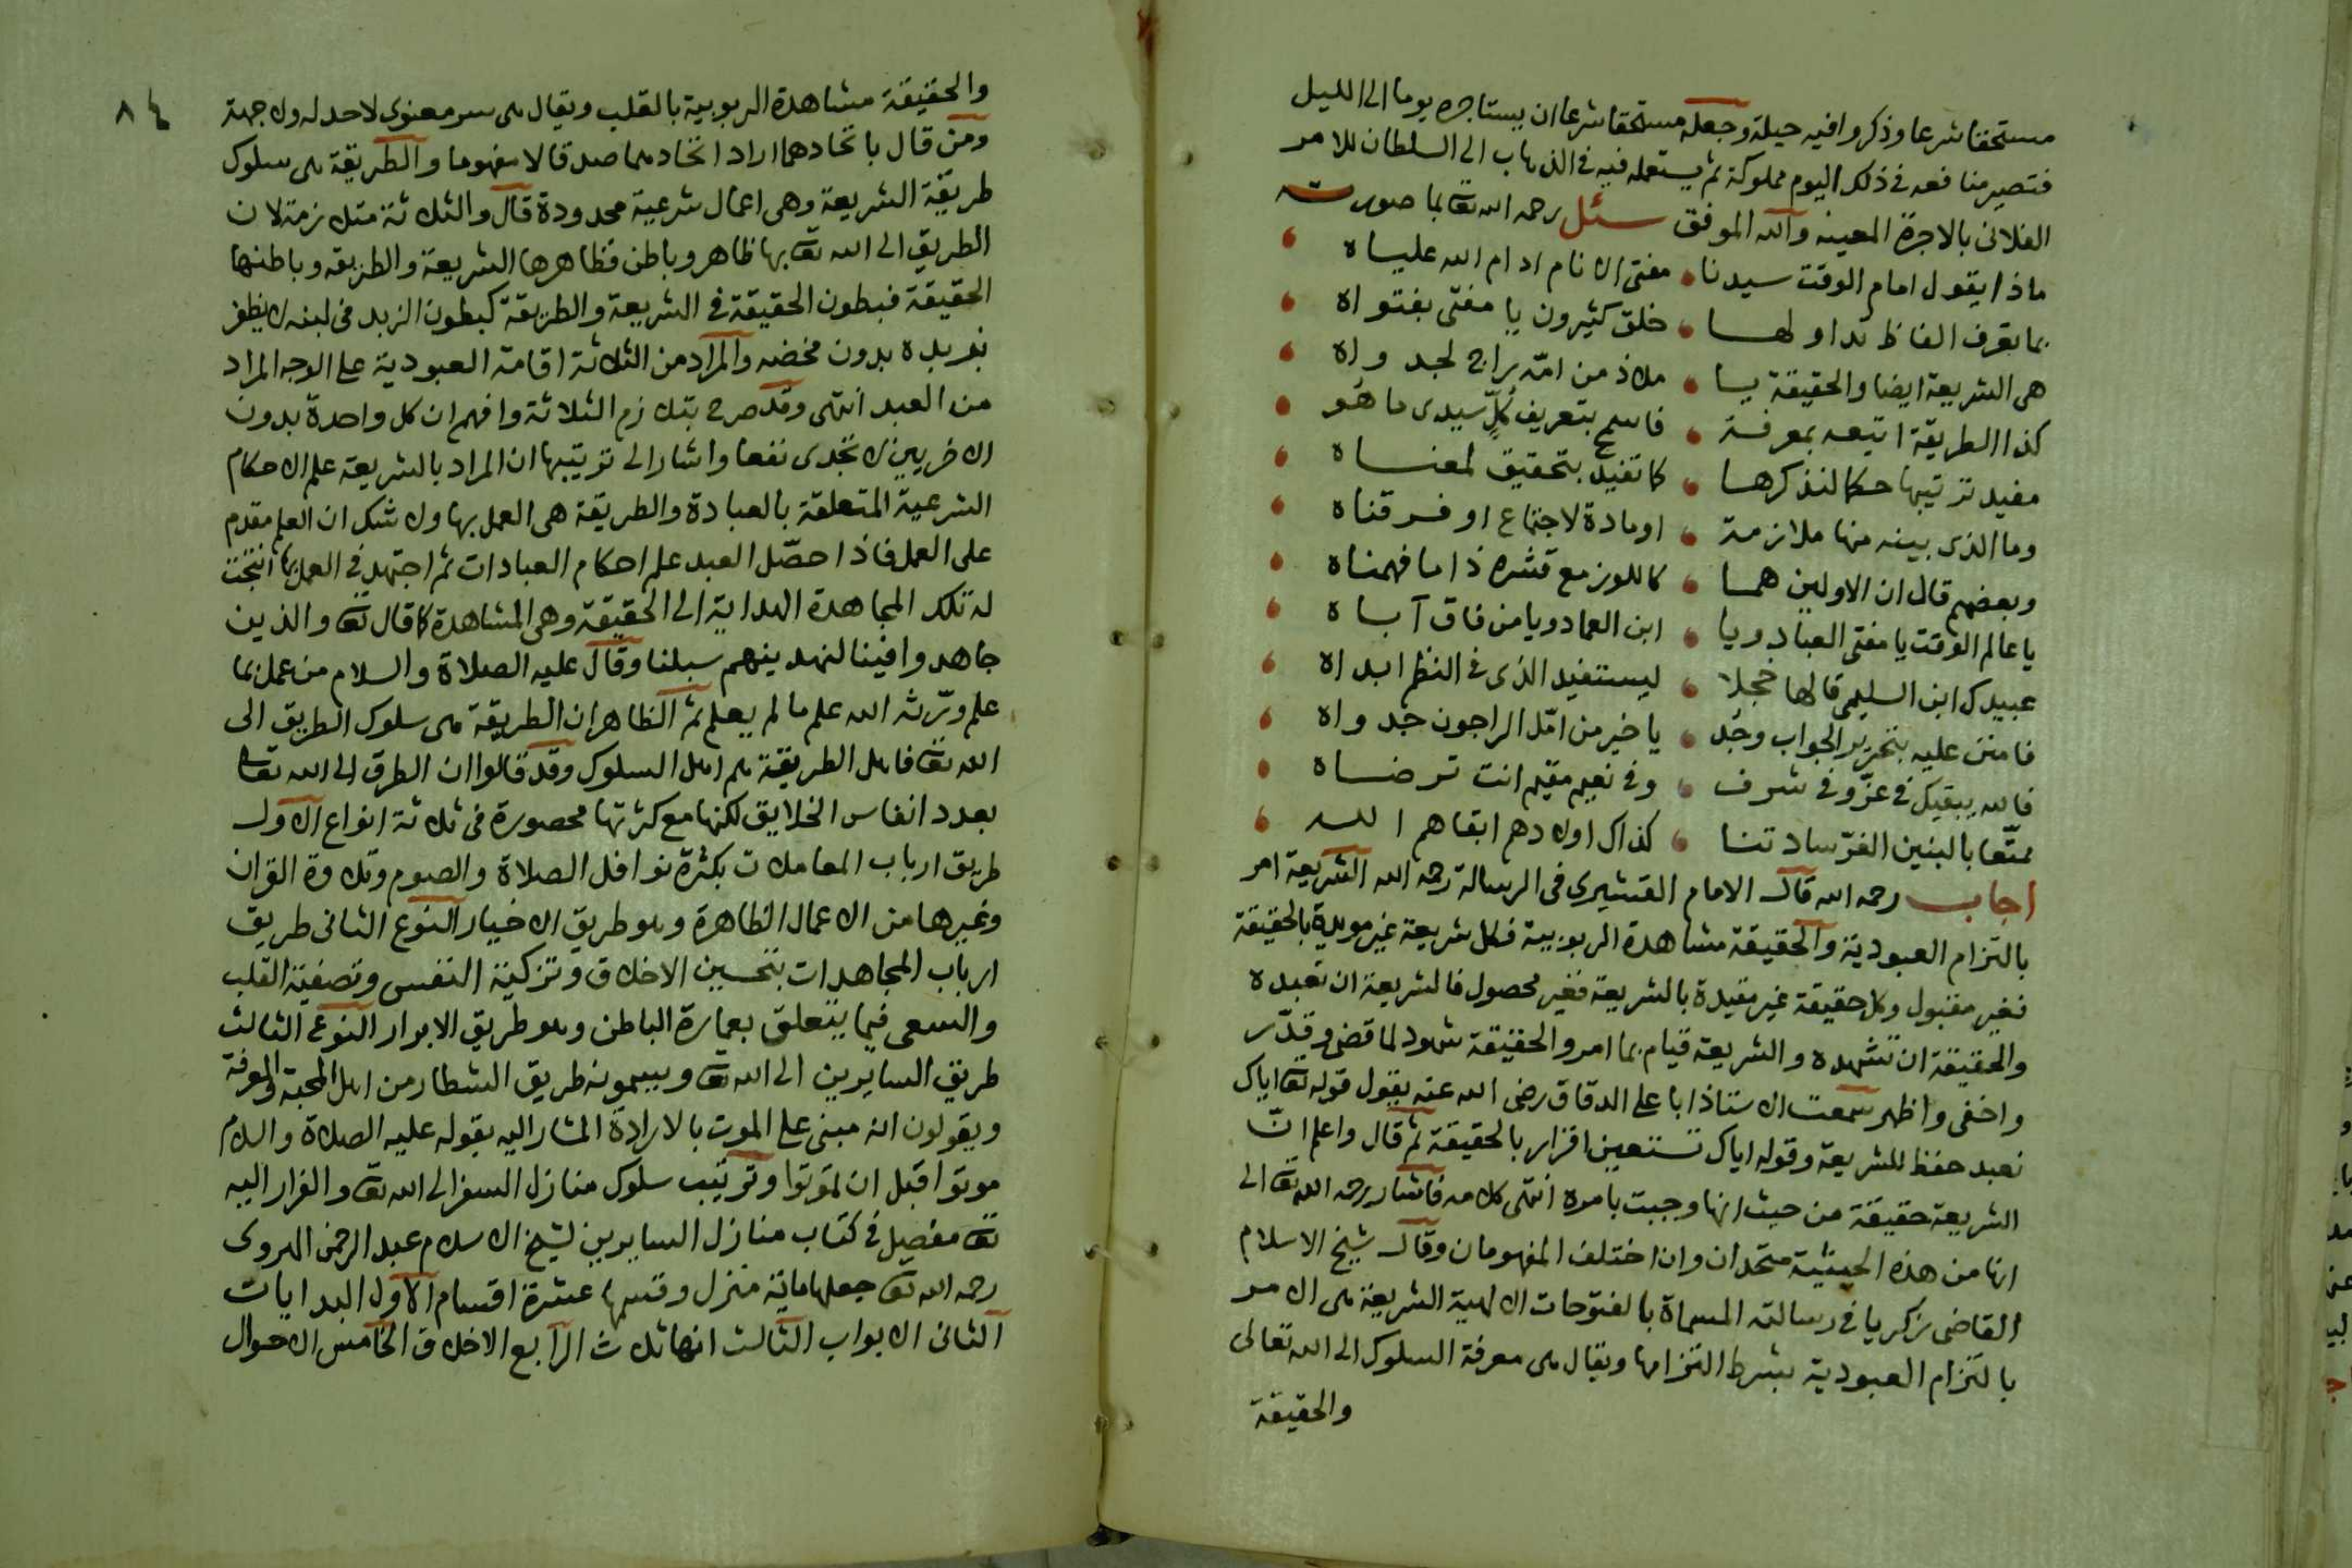 مستحقا شرعا وذكروا فيه حيلة وجعله مستحقا شرعا ان يستاجره يوما الى الليل
فتصير منافعه في ذلك اليوم مملوكة ثم يستعمله فيه في الذهاب الى السلطان للامر
الفلاني بالاجرة المعينه والله الموفق سئل رحمه الله تعا بما صورته
ماذا يقول امام الوقت سيدنا مفتى الانام ادام الله علياه
بما تعرف الفاظ تداولها خلق كثيرون يا مفتى بفتواه
هى الشريعة ايضا والحقيقة يا ملاذ من امّه راج لجدواه
كذا الطريقة اتبعه بمعرفة فاسمح بتعريف كلٍّ سيدى ما هُو
مفيد ترتيبها حكما لنذكرها كما تفيد بتحقيق لمعناه
وما الذى بينه منها ملازمة او مادة لاجتماع او فرقناه
وبعضهم قال ان الاولين هما كاللوز مع قشره ذا ما فهمناه
يا عالم الوقت يا مفتى العباد ويا ابن العماد ويا من فاق آباه
عبيدك ابن السليمى قالها خجلا ليستفيد الذى في النظم ابداه
فامنن عليه بتحرير الجواب وجُد يا خير من امّل الراجون جدواه
فالله يبقيك في عزّ وفي شرف وفي نعيم مقيم انت ترضاه
ممتّعا بالبنين الغرّ سادتنا كذاك اولادهم ابقاهم الله
اجاب رحمه الله قال الامام القشيرى في الرسالة رحمه الله الشريعة امر
بالتزام العبودية والحقيقة مشاهدة الربوبية فكل شريعة غير مويدة بالحقيقة
فغير مقبول وكل حقيقة غير مقيدة بالشريعة فغير محصول فالشريعة ان تعبده
والحقيقة ان تشهده والشريعة قيام بما امر والحقيقة شهود لما قضى وقدّر
واخفى واظهر سمعت الاستاذ ابا على الدقاق رضى الله عنه يقول قوله تعا اياك
نعبد حفظ للشريعة وقوله اياك نستعين اقرار بالحقيقة ثم قال واعلم انّ
الشريعة حقيقة من حيث انها وجبت بامره انتهى كلامه فاشار رحمه الله تعا الى
انها من هذه الحيثية متحدان وان اختلف المفهومان وقال شيخ الاسلام
القاضى زكريا في رسالته المسماة بالفتوحات الالهية الشريعة هى الامر
بالتزام العبودية بشرط التزامها ويقال هى معرفة السلوك الى الله تعالى
والحقيقة
٨٤
والحقيقة مشاهدة الربوبية بالقلب ويقال هى سر معنوى لا حد له ولا جهة
ومن قال باتحادهما اراد اتحادهما صدقا لا مفهوما والطريقة هى سلوك
طريقة الشريعة وهى اعمال شرعية محدودة قال والثلاثة متلازمة لان
الطريق الى الله تعا بها ظاهر وباطن فظاهرها الشريعة والطريقه وباطنها
الحقيقة فبطون الحقيقة في الشريعة والطريقة كبطون الزبد في لبنه لا يظفر
بزبده بدون مخضه والمراد من الثلاثة اقامة العبودية على الوجه المراد
من العبد انتهى وقد صرح بتلازم الثلاثة وافهم ان كل واحدة بدون
الاخريين لا تجدى نفعا واشار الى ترتيبها ان المراد بالشريعة علم الاحكام
الشرعية المتعلقة بالعبادة والطريقة هى العمل بها ولا شك ان العلم مقدم
على العمل فاذا حصّل العبد علم احكام العبادات ثم اجتهد في العمل بها انتجت
له تلك المجاهدة الهداية الى الحقيقة وهى المشاهدة كما قال تعا والذين
جاهدوا فينا لنهدينهم سبلنا وقال عليه الصلاة والسلام من عمل بما
علم ورّثه الله علم ما لم يعلم ثم الظاهر ان الطريقة هى سلوك الطريق الى
الله تعا فاهل الطريقة هم اهل السلوك وقد قالوا ان الطرق الى الله تعا
بعدد انفاس الخلايق لكنها مع كثرتها محصورة في ثلاثة انواع الاول
طريق ارباب المعاملات بكثرة نوافل الصلاة والصوم وتلاوة القران
وغيرها من الاعمال الظاهرة وهو طريق الاخيار النوع الثانى طريق
ارباب المجاهدات بتحسين الاخلاق وتزكية النفس وتصفية القلب
والسعى فيما يتعلق بعمارة الباطن وهو طريق الابرار النوع الثالث
طريق السايرين الى الله تعا ويسمونه طريق الشطار من اهل المحبة والمعرفة
ويقولون انه مبنى على الموت بالارادة المشار اليه بقوله عليه الصلاة والسلام
موتوا قبل ان تموتوا وترتيب سلوك منازل السفر الى الله تعا والفرار اليه
تعا مفصل في كتاب منازل السايرين لشيخ الاسلام عبد الرحمن الهروى
رحمه الله تعا جعلها ماية منزل وقسمها عشرة اقسام الاول البدايات
الثانى الابواب الثالث انها ثلاث الرابع الاخلاق الخامس الاحوال